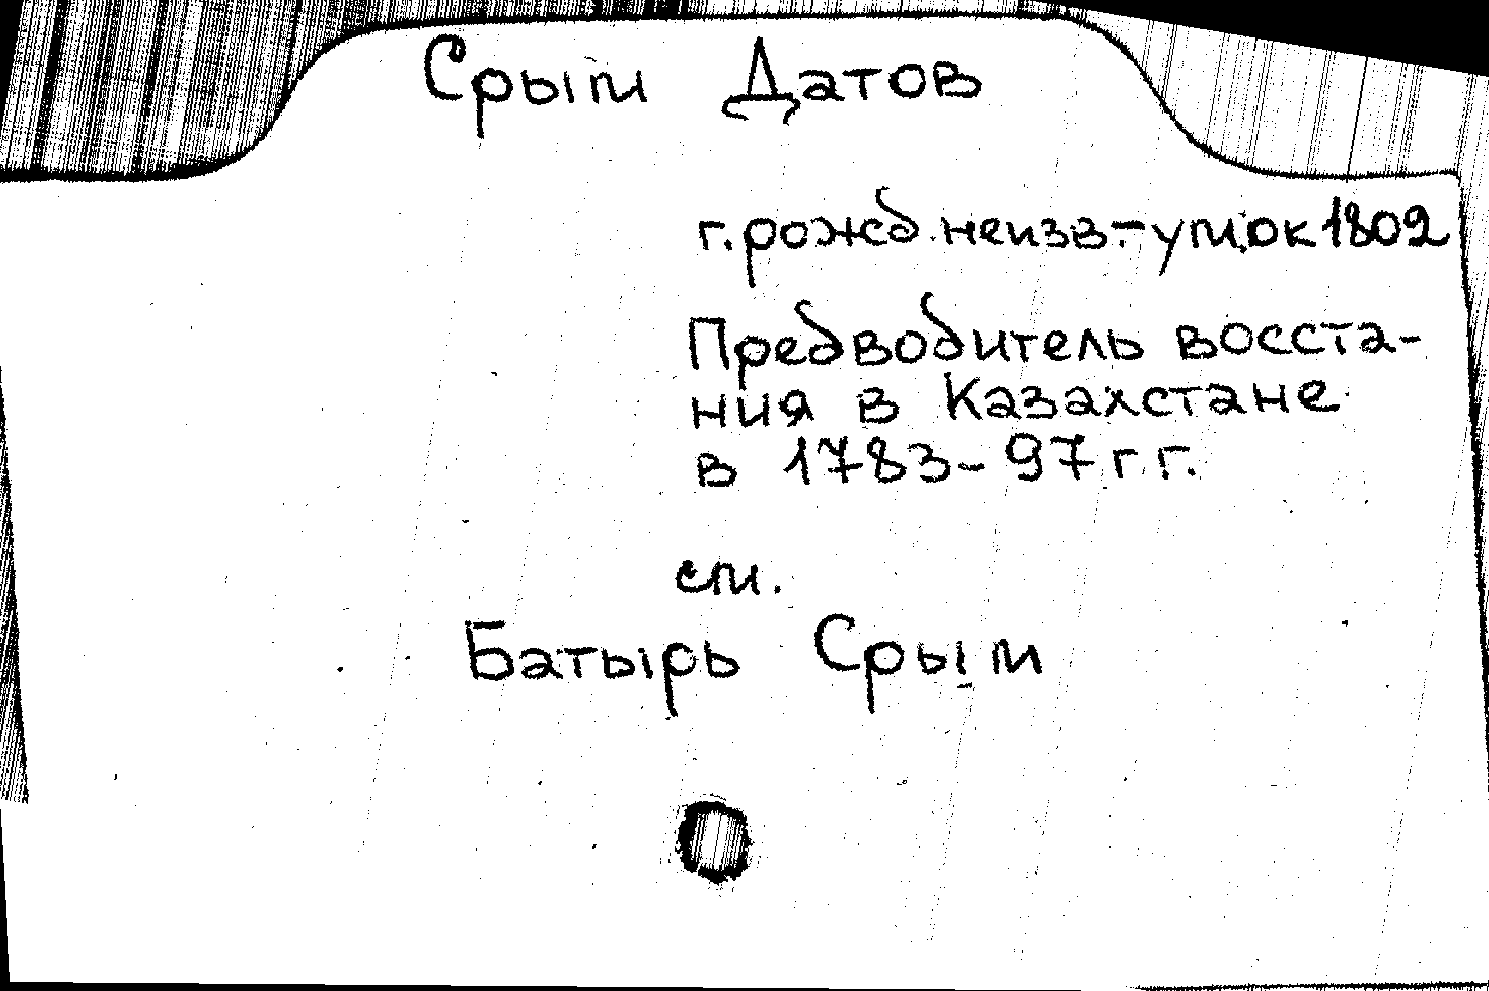 Срым Датов
г. рожд. неизв.- ум. ок 1802
Предводитель восста-
ния в Казахстане
в 1783-97 г г.
см.
Батырь Срым